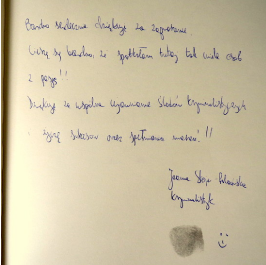 Bardzo serdecznie dziękuję za zaproszenie.
Cieszę się bardzo, że spotkałam tutaj tak wiele osób
z pasją!!
Dziękuję za wspólne ujawnianie śladów kryminalistycznych
i życzę sukcesów oraz spełnienia marzeń!!
Joanna
Kryminalistyk